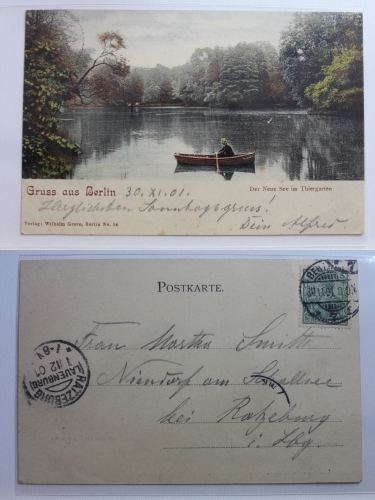 Gruss aus Berlin 30.XI.01. Der Neue See im Thiergarten
Herzlichsten Sonntagsgruss!
Dein Alfred.
Verlag: Wilhelm Greve, Berlin No. 56
POSTKARTE.
Frau Martha Smith
Niendorf am Schallsee
bei Ratzeburg
i. Lbg.
RATZEBURG
(LAUENBURG)
1 12 01
7-8V